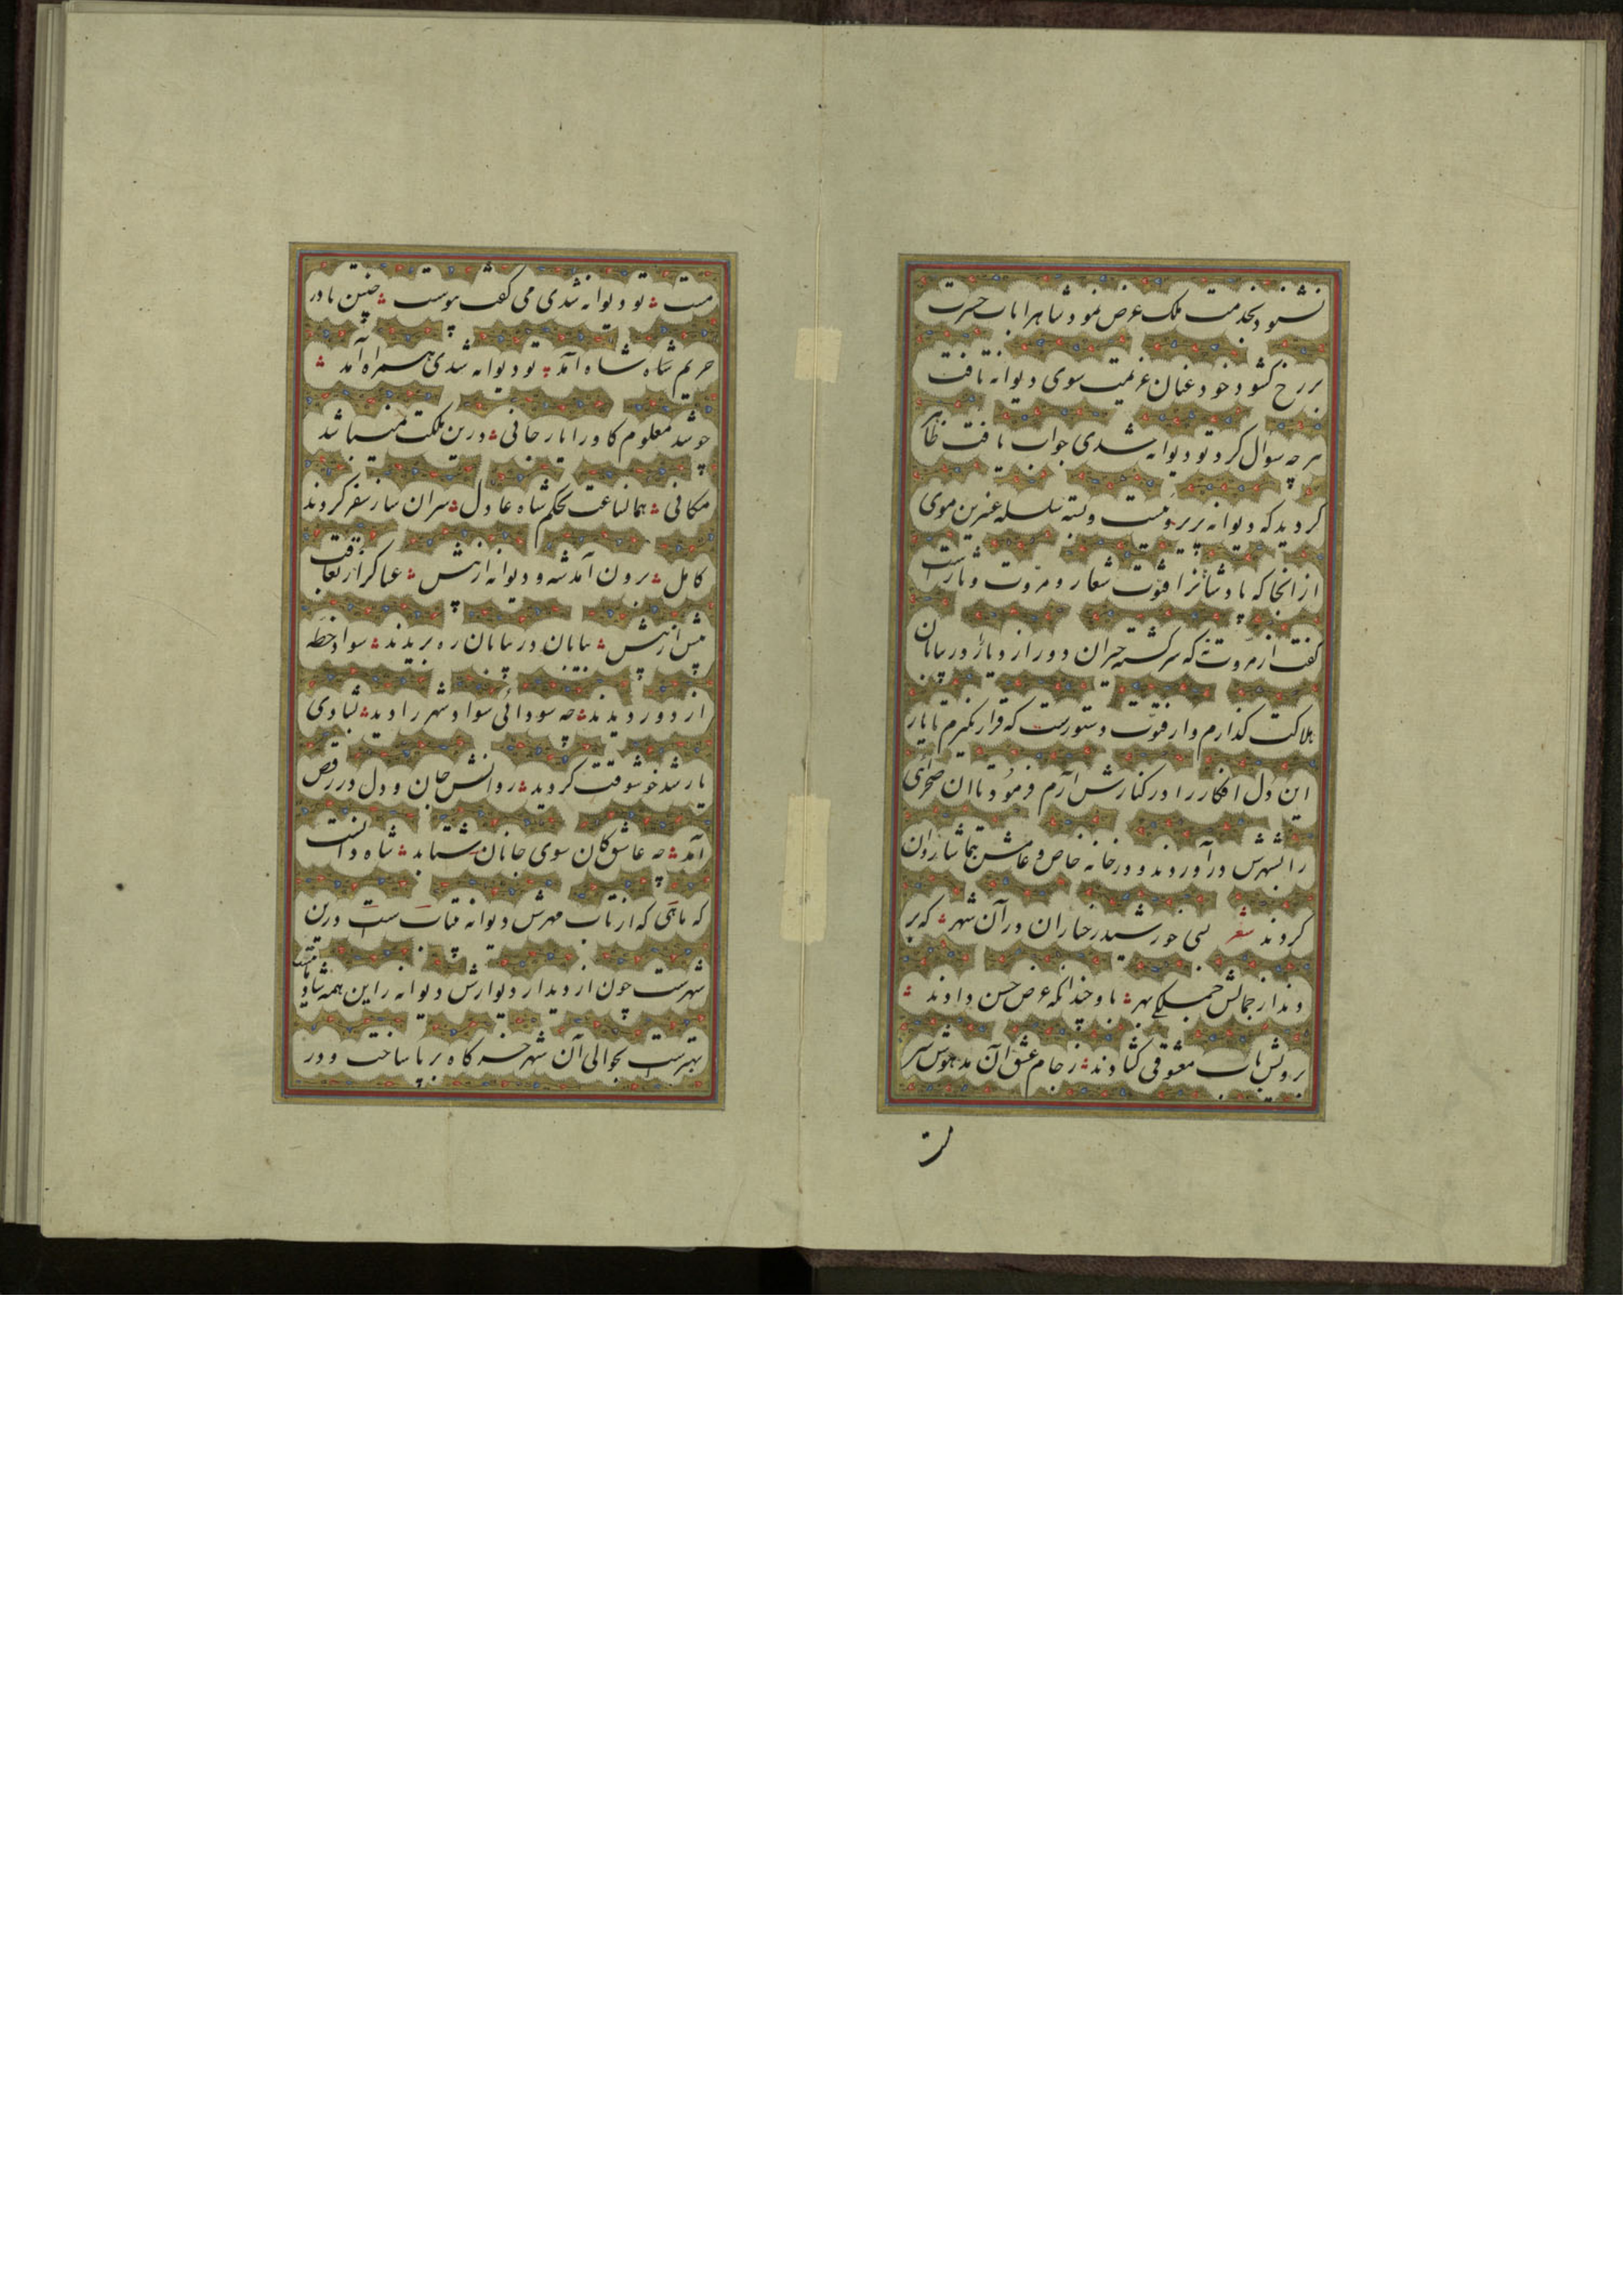 نشنود بخدمت ملک عرض نمود شاهرا باب حیرت
بر رخ کشود خود عنان عزیمت سوی دیوانه تافت
هر چه سوال کرد تو دیوانه شدی جواب یافت ظاهر
کردید که دیوانه پریرویست و بسته سلسله عنبرین موی
از انجا که پادشانرا فتوت شعار و مروت دثارست
گفت از مروت نه که سرگشته حیران دور از دیار در بیابان
هلاکت گذارم و از فتوت دستورست که قرار نگیرم تا یار
این دل افکار را در کنارش آرم فرمود تا ان صحرای
را بشهرش در آوردند و در خانه خاص و عامش بتماشا روان
کردند شعر بسی خورشید رخساران در آن شهر ؞ که بر
دند از جمالش جملکی بهر ؞ باو چندانکه عرض حسن دادند ؞
برویش باب معشوقی کشادند ؞ ز جام عشق آن مدهوش سر
مست
مست ؞ تو دیوانه شدی می گفت پیوست ؞ چنین تا در
حریم شاه شاه آمد ؞ تو دیوانه شدی همراه آمد ؞
چو شد معلوم کاو را یار جانی ؞ درین ملکت نمیباشد
مکانی ؞ همانساعت بحکم شاه عادل ؞ سران ساز سفر کردند
کامل ؞ برون آمد شه و دیوانه از پیش ؞ عساکر از تعاقب
پیش از پیش ؞ بیابان در بیابان ره بریدند ؞ سواد خطه
از دور دیدند ؞ چه سودائی سواد شهر را دید ؞ بشادی
یار شد خوشوقت گردید ؞ روانش جان و دل در رقص
آمد ؞ چه عاشق کان سوی جانان شتابد ؞ شاه دانست
که ماهی که از تاب مهرش دیوانه بیتاب ست درین
شهرست چون از دیدار دیوارش دیوانه را این همه شادی
بهترست بحوالی آن شهر خرکاه بر پا ساخت و در